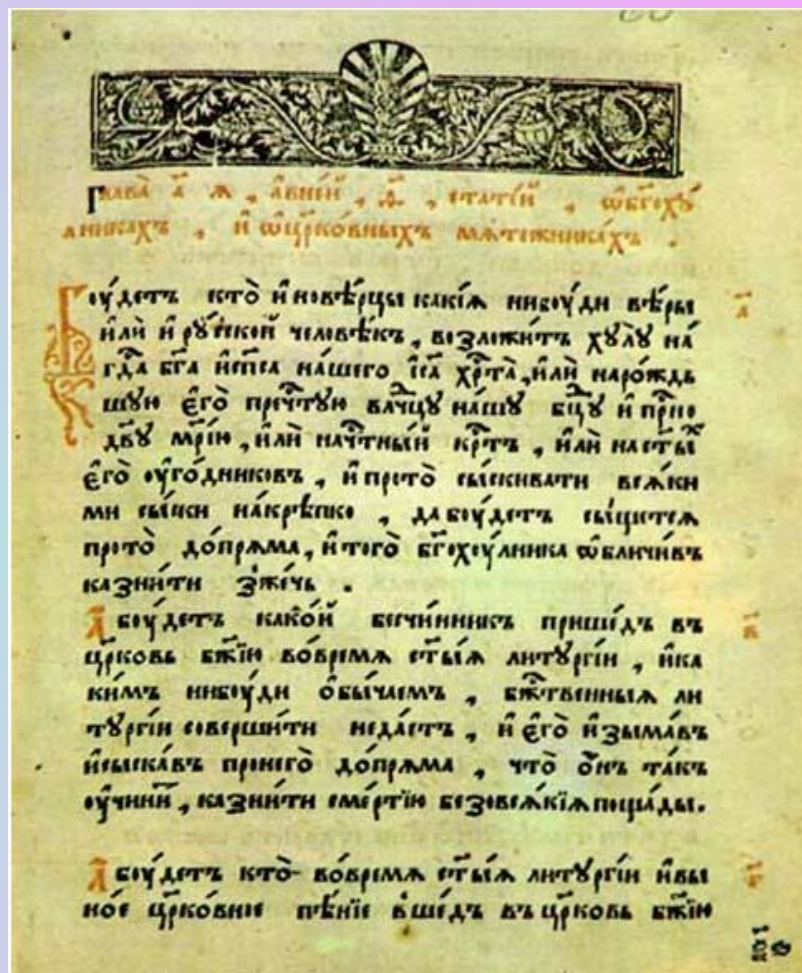 Глава̀ а҃ я , а вне́й , ѳ҃ , стате́й , ѡбг҃оху́
лникахъ , и҆ ѡцр҃ко́вныхъ мѧте́жникахъ .
Боу́детъ кто̀ и҆нове́рцы какі́ѧ нибоу́ди вѣ́ры
и҆лѝ и҆ рꙋ́сской человѣ́къ , возложи́тъ хꙋ́лꙋ на́
гд҃а бг҃а и҆сп҃са на́шего і҆са҃ хрⷭ҇та̀ , и҆лѝ наро́ждь
шую є҆го̀ пречⷭ҇тую влⷣчцꙋ на́шꙋ бц҃ꙋ и҆ прⷭ҇но
дв҃ꙋ мр҃і́ю , и҆лѝ начⷭ҇тны́й крⷭ҇тъ , и҆лѝ наст҃ы́хъ
є҆го̀ оу҆го́дниковъ , и҆ прото̀ сы́скивати всѧ́ки
ми сы́ски на́крѣпко , да боу́детъ сы́щетсѧ
прото̀ до́прѧма , и҆ того̀ бг҃охоу́лника ѡ҆бличи́въ
казни́ти зже́чь .
А҆ боу́детъ како́й бесчи́нникъ прише́дъ въ
цр҃ковь бж҃їю во́времѧ ст҃ы́ѧ литꙋргі́и , и҆ка
ки́мъ нибоу́ди о҆бы́чаемъ , бжⷭ҇твенныѧ ли
тꙋргі́и соверши́ти неда́стъ , и҆ є҆го̀ и҆зыма́въ
и҆сыска́въ пронего̀ до́прѧма , что̀ о҆́нъ та́къ
оу҆чини́тъ , казни́ти сме́ртїю безовсѧ́кїѧ поща́ды.
А҆ боу́детъ кто̀ во́времѧ ст҃ы́ѧ литꙋргі́и и҆вы
но́е цр҃ко́вное пѣ́нїе вше́дъ въ цр҃ковь бж҃їю
а҃
в҃
г҃